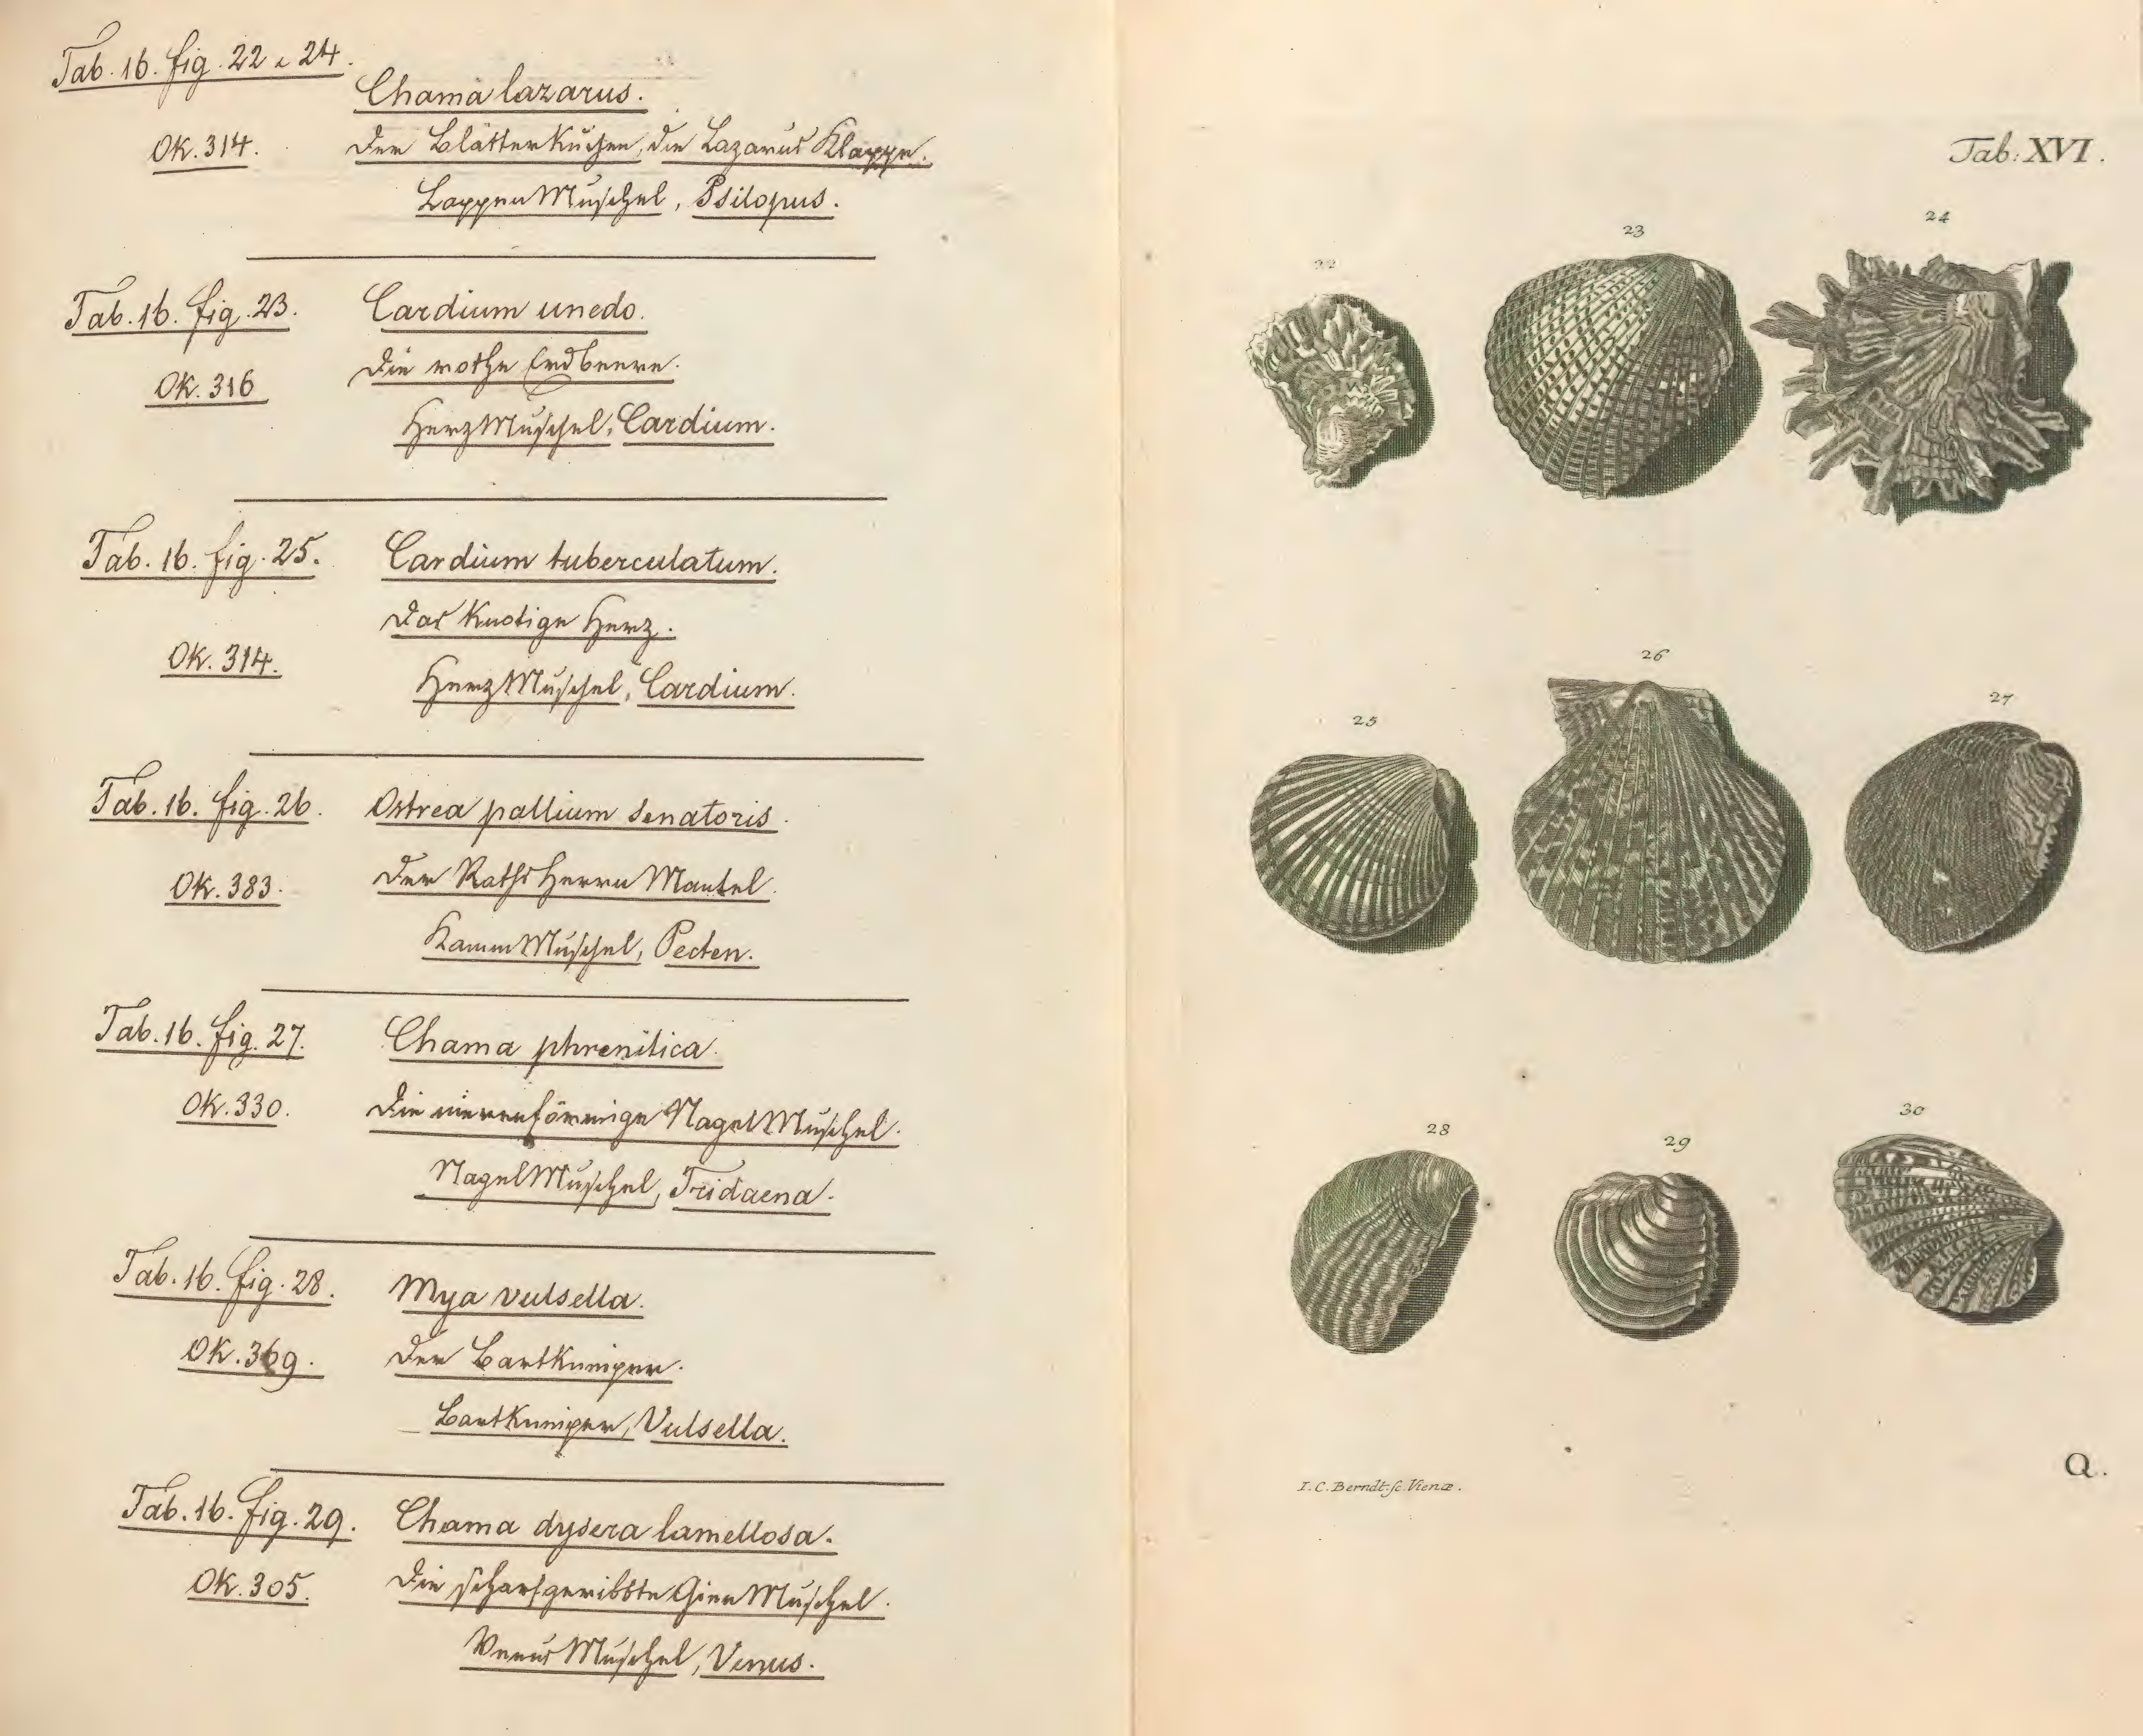 Tab. 16. fig. 22 e 24.
Chama lazarus.
OK. 314. Der Blätterkuchen, die Lazarus Klappe.
LappenMuschel, Psilopus.
Tab. 16. fig. 23. Cardium unedo.
OK. 316 Die rothe Erdbeere.
HerzMuschel, Cardium.
Tab. 16. fig. 25. Cardium tuberculatum.
Das Knotige Herz.
OK. 314. HerzMuschel, Cardium.
Tab. 16. fig. 26. Ostrea pallium senatoris.
OK. 383. Der RathsHerrn Mantel.
KammMuschel, Pecten.
Tab. 16. fig. 27. Chama phrenitica.
OK. 330. Die nierenförmige NagelMuschel.
NagelMuschel, Tridacna.
Tab. 16. fig. 28. Mya vulsella.
OK. 369. Der Bartkneiper.
Bartkneiper, Vulsella.
Tab. 16. fig. 29. Chama dysera lamellosa.
OK. 305. Die scharfgeribbte GienMuschel.
VenusMuschel, Venus.
Tab: XVI.
22 23 24
25 26 27
28 29 30
I. C. Berndt. sc. Vienæ.
Q.